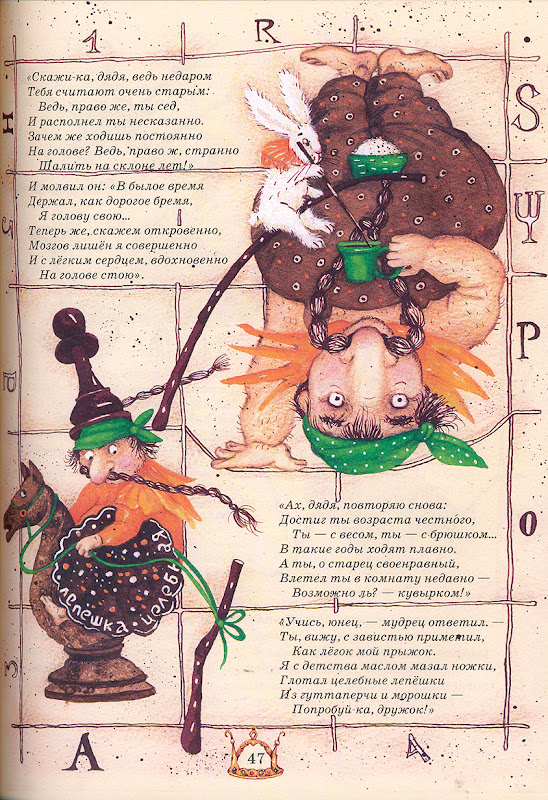 1 R
«Скажи-ка, дядя, ведь недаром
Тебя считают очень старым:
Ведь, право же, ты сед,
И располнел ты несказанно.
Зачем же ходишь постоянно
На голове? Ведь, право ж, странно
Шалить на склоне лет!»
И молвил он: «В былое время
Держал, как дорогое бремя,
Я голову свою...
Теперь же, скажем откровенно,
Мозгов лишён я совершенно
И с лёгким сердцем, вдохновенно
На голове стою».
S
Ψ
P
O
лепёшка целебная
«Ах, дядя, повторяю снова:
Достиг ты возраста честного,
Ты — с весом, ты — с брюшком...
В такие годы ходят плавно.
А ты, о старец своенравный,
Влетел ты в комнату недавно —
Возможно ль? — кувырком!»
«Учись, юнец, — мудрец ответил. —
Ты, вижу, с завистью приметил,
Как лёгок мой прыжок.
Я с детства маслом мазал ножки,
Глотал целебные лепёшки
Из гуттаперчи и морошки —
Попробуй-ка, дружок!»
A
47
A